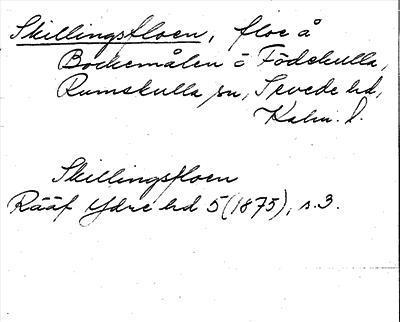 Skillingsfloen, floe å
Bockemålen ö Födekulla,
Rumskulla sn, Sevede hd,
Kalm. l.
Skillingsfloen
Rääf Ydre hd 5(1875), s.3.